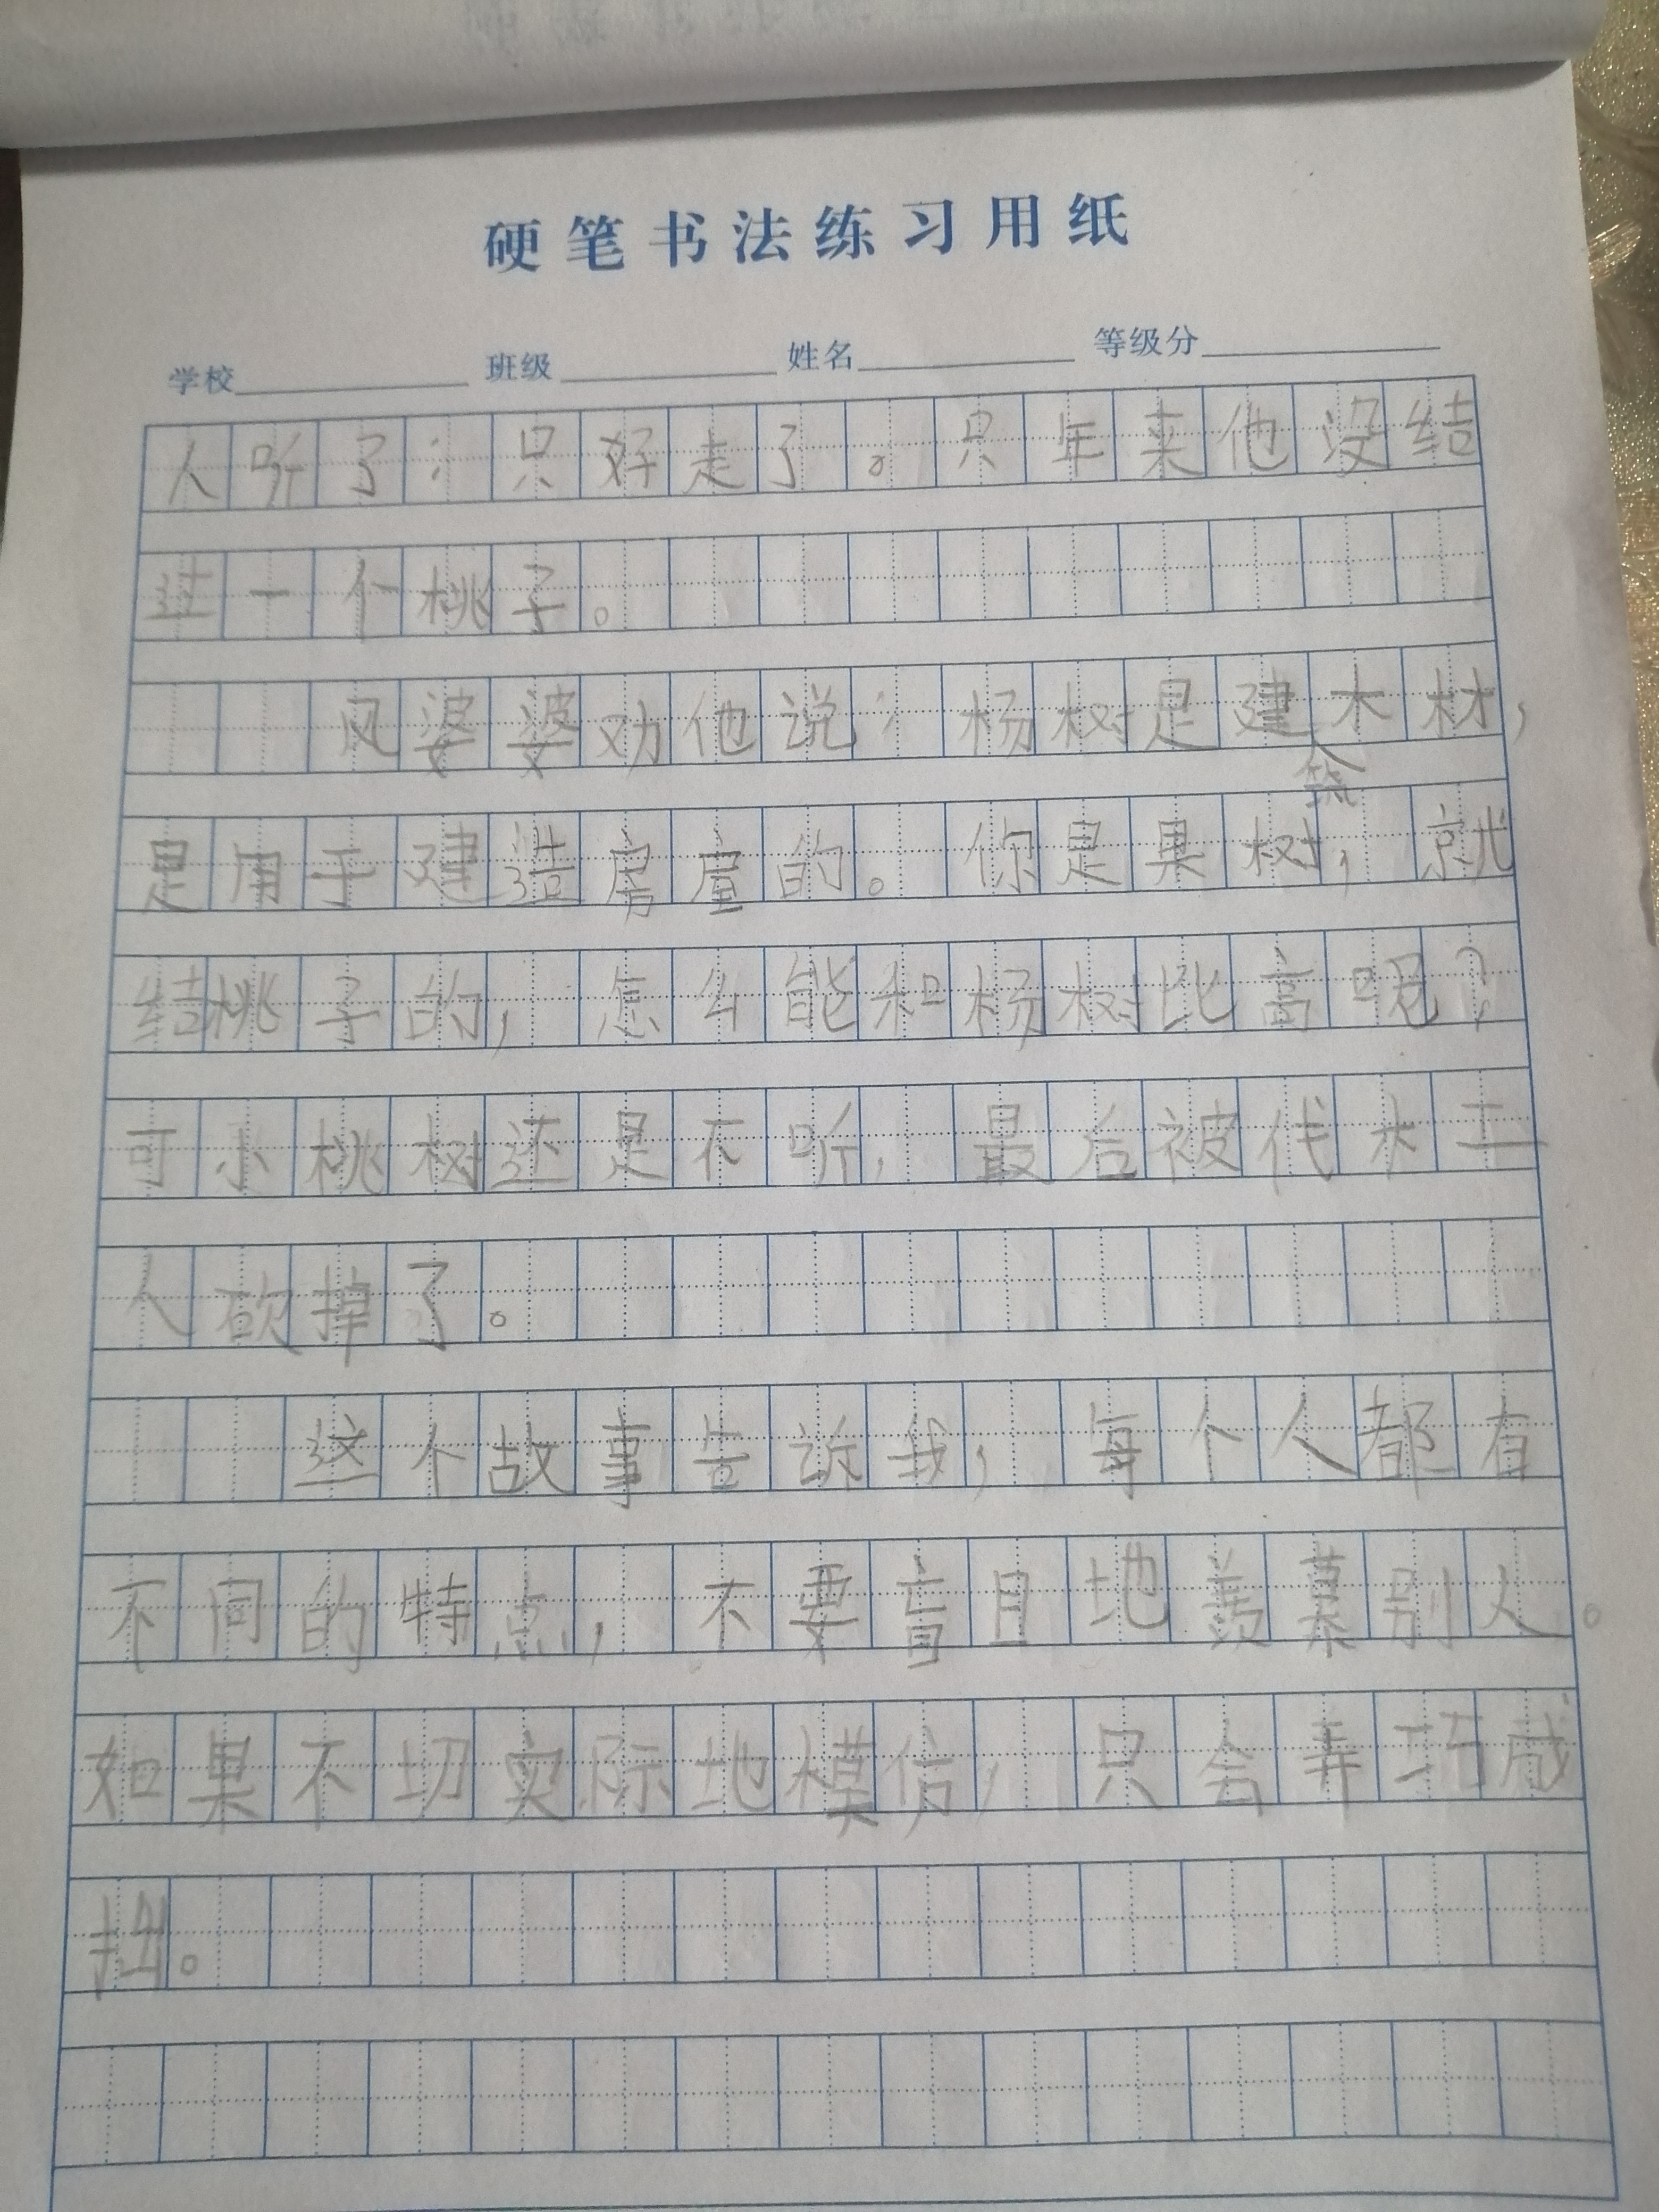 硬笔书法练习用纸
学校 班级 姓名 等级分
人听了；只好走了。只年来他没结
结一个桃子。
风婆婆劝他说：杨树是建筑木材，
是用于建造房屋的。你是果树，就
结桃子的，怎么能和杨树比高呢？
可小桃树还是不听，最后被代木工
人砍掉了。
这个故事告诉我，每个人都有
不同的特点，不要盲目地羡慕别人。
如果不切实际地模仿，只会弄巧成
拙。